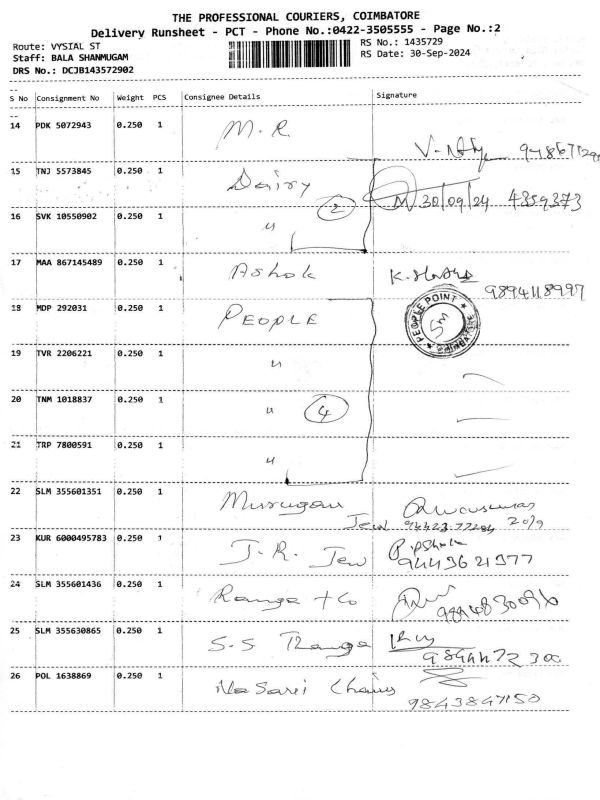 THE PROFESSIONAL COURIERS, COIMBATORE
Delivery Runsheet - PCT - Phone No.:0422-3505555 - Page No.:2
Route: VYSIAL ST
RS No.: 1435729
Staff: BALA SHANMUGAM
RS Date: 30-Sep-2024
DRS No.: DCJB143572902
S No Consignment No Weight PCS Consignee Details Signature
14 PDK 5072943 0.250 1 M.R
15 TNJ 5573845 0.250 1 Dairy 30/09/24 4359373
2
16 SVK 10550902 0.250 1 "
17 MAA 867145489 0.250 1 Ashok K.
9894118997
18 MDP 292031 0.250 1 PEOPLE
PEOPLE POINT
COIMBATORE
19 TVR 2206221 0.250 1 "
20 TNM 1018837 0.250 1 " 4
21 TRP 7800591 0.250 1 "
22 SLM 355601351 0.250 1 Murugan
Jew 94423-77284
23 KUR 6000495783 0.250 1 J.R. Jew
9443621377
24 SLM 355601436 0.250 1 Ranga + Co
25 SLM 355630865 0.250 1 S.S Ranga
9894472300
26 POL 1638869 0.250 1 Chains
9843847150